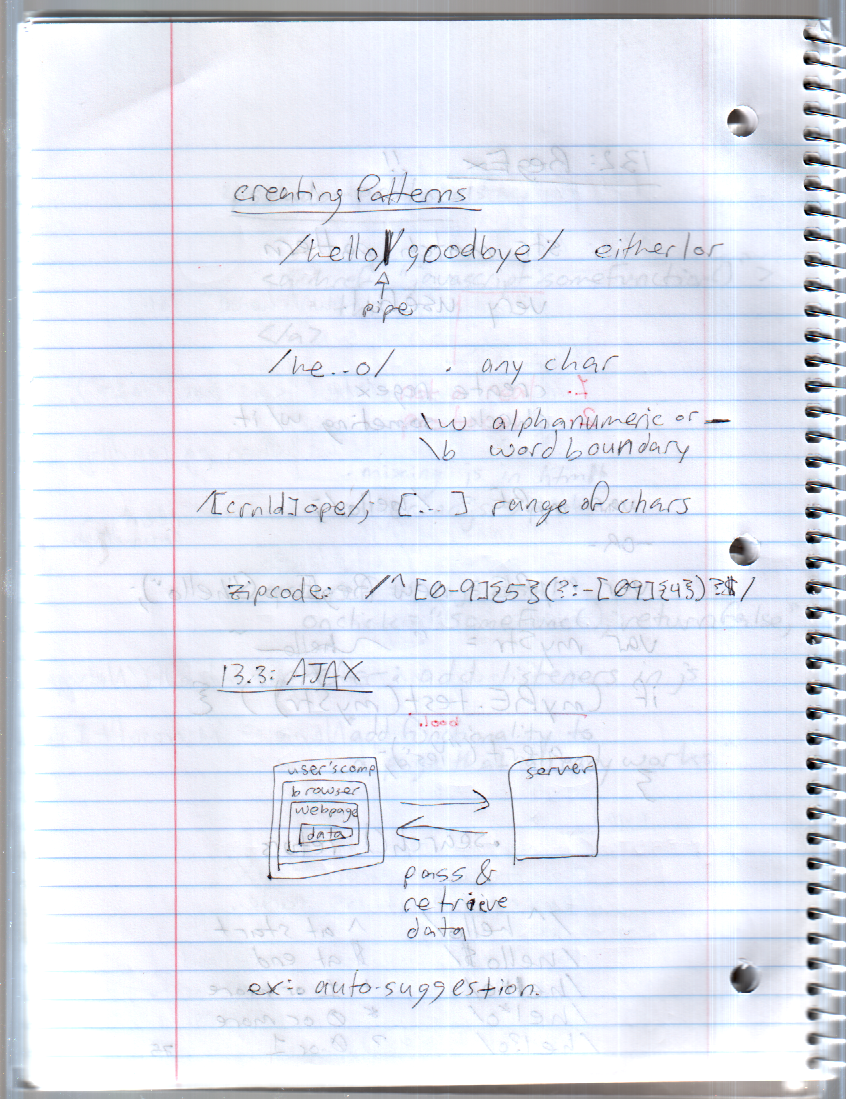 creating Patterns
/hello|goodbye/ either/or
pipe
/he..o/ . any char
\w alphanumeric or _
\b word boundary
/[crnld]ope/; [...] range of chars
zipcode: /^[0-9]{5}(?:-[09]{4})?$/
13.3: AJAX
.load
user's comp
browser
webpage
data
server
pass &
retrieve
data
ex: auto-suggestion.